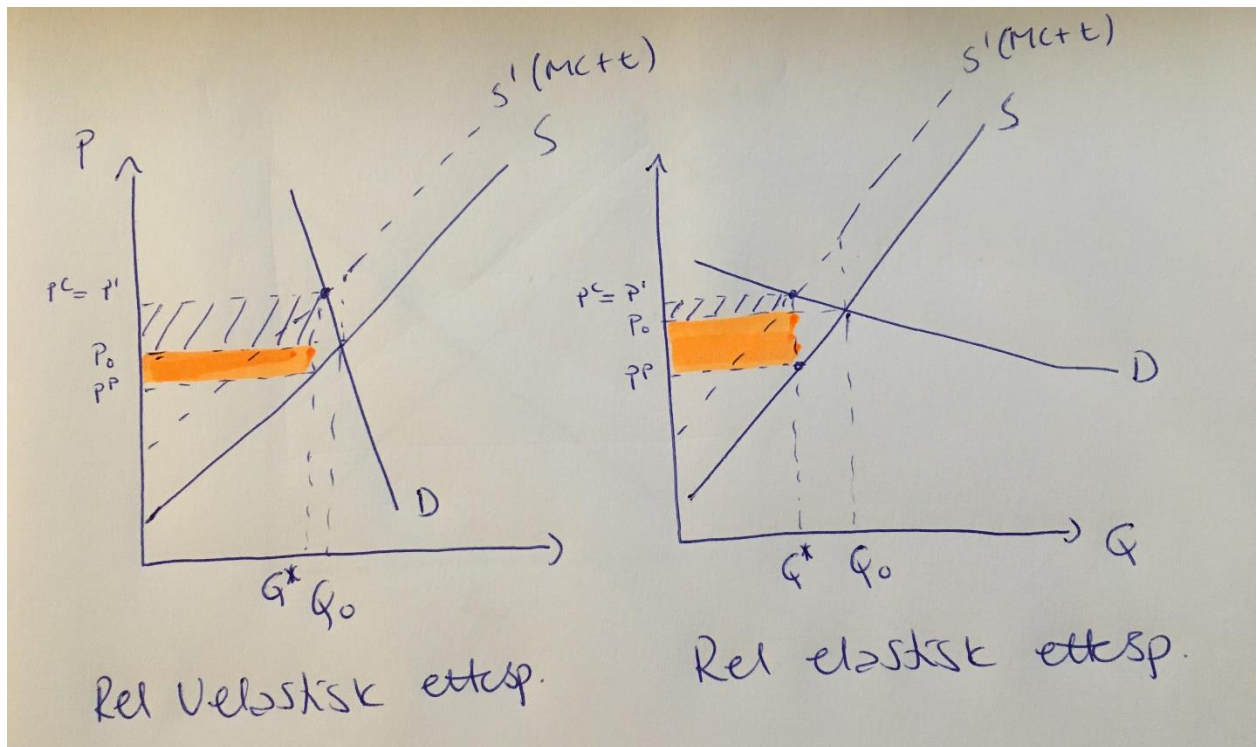 P
S'(MC+t)
S
P^C = P'
P_0
P^P
D
Q*
Q_0
Rel Uelastisk ettesp.
S'(MC+t)
S
P^C = P'
P_0
P^P
D
Q*
Q_0
Q
Rel elastisk ettesp.